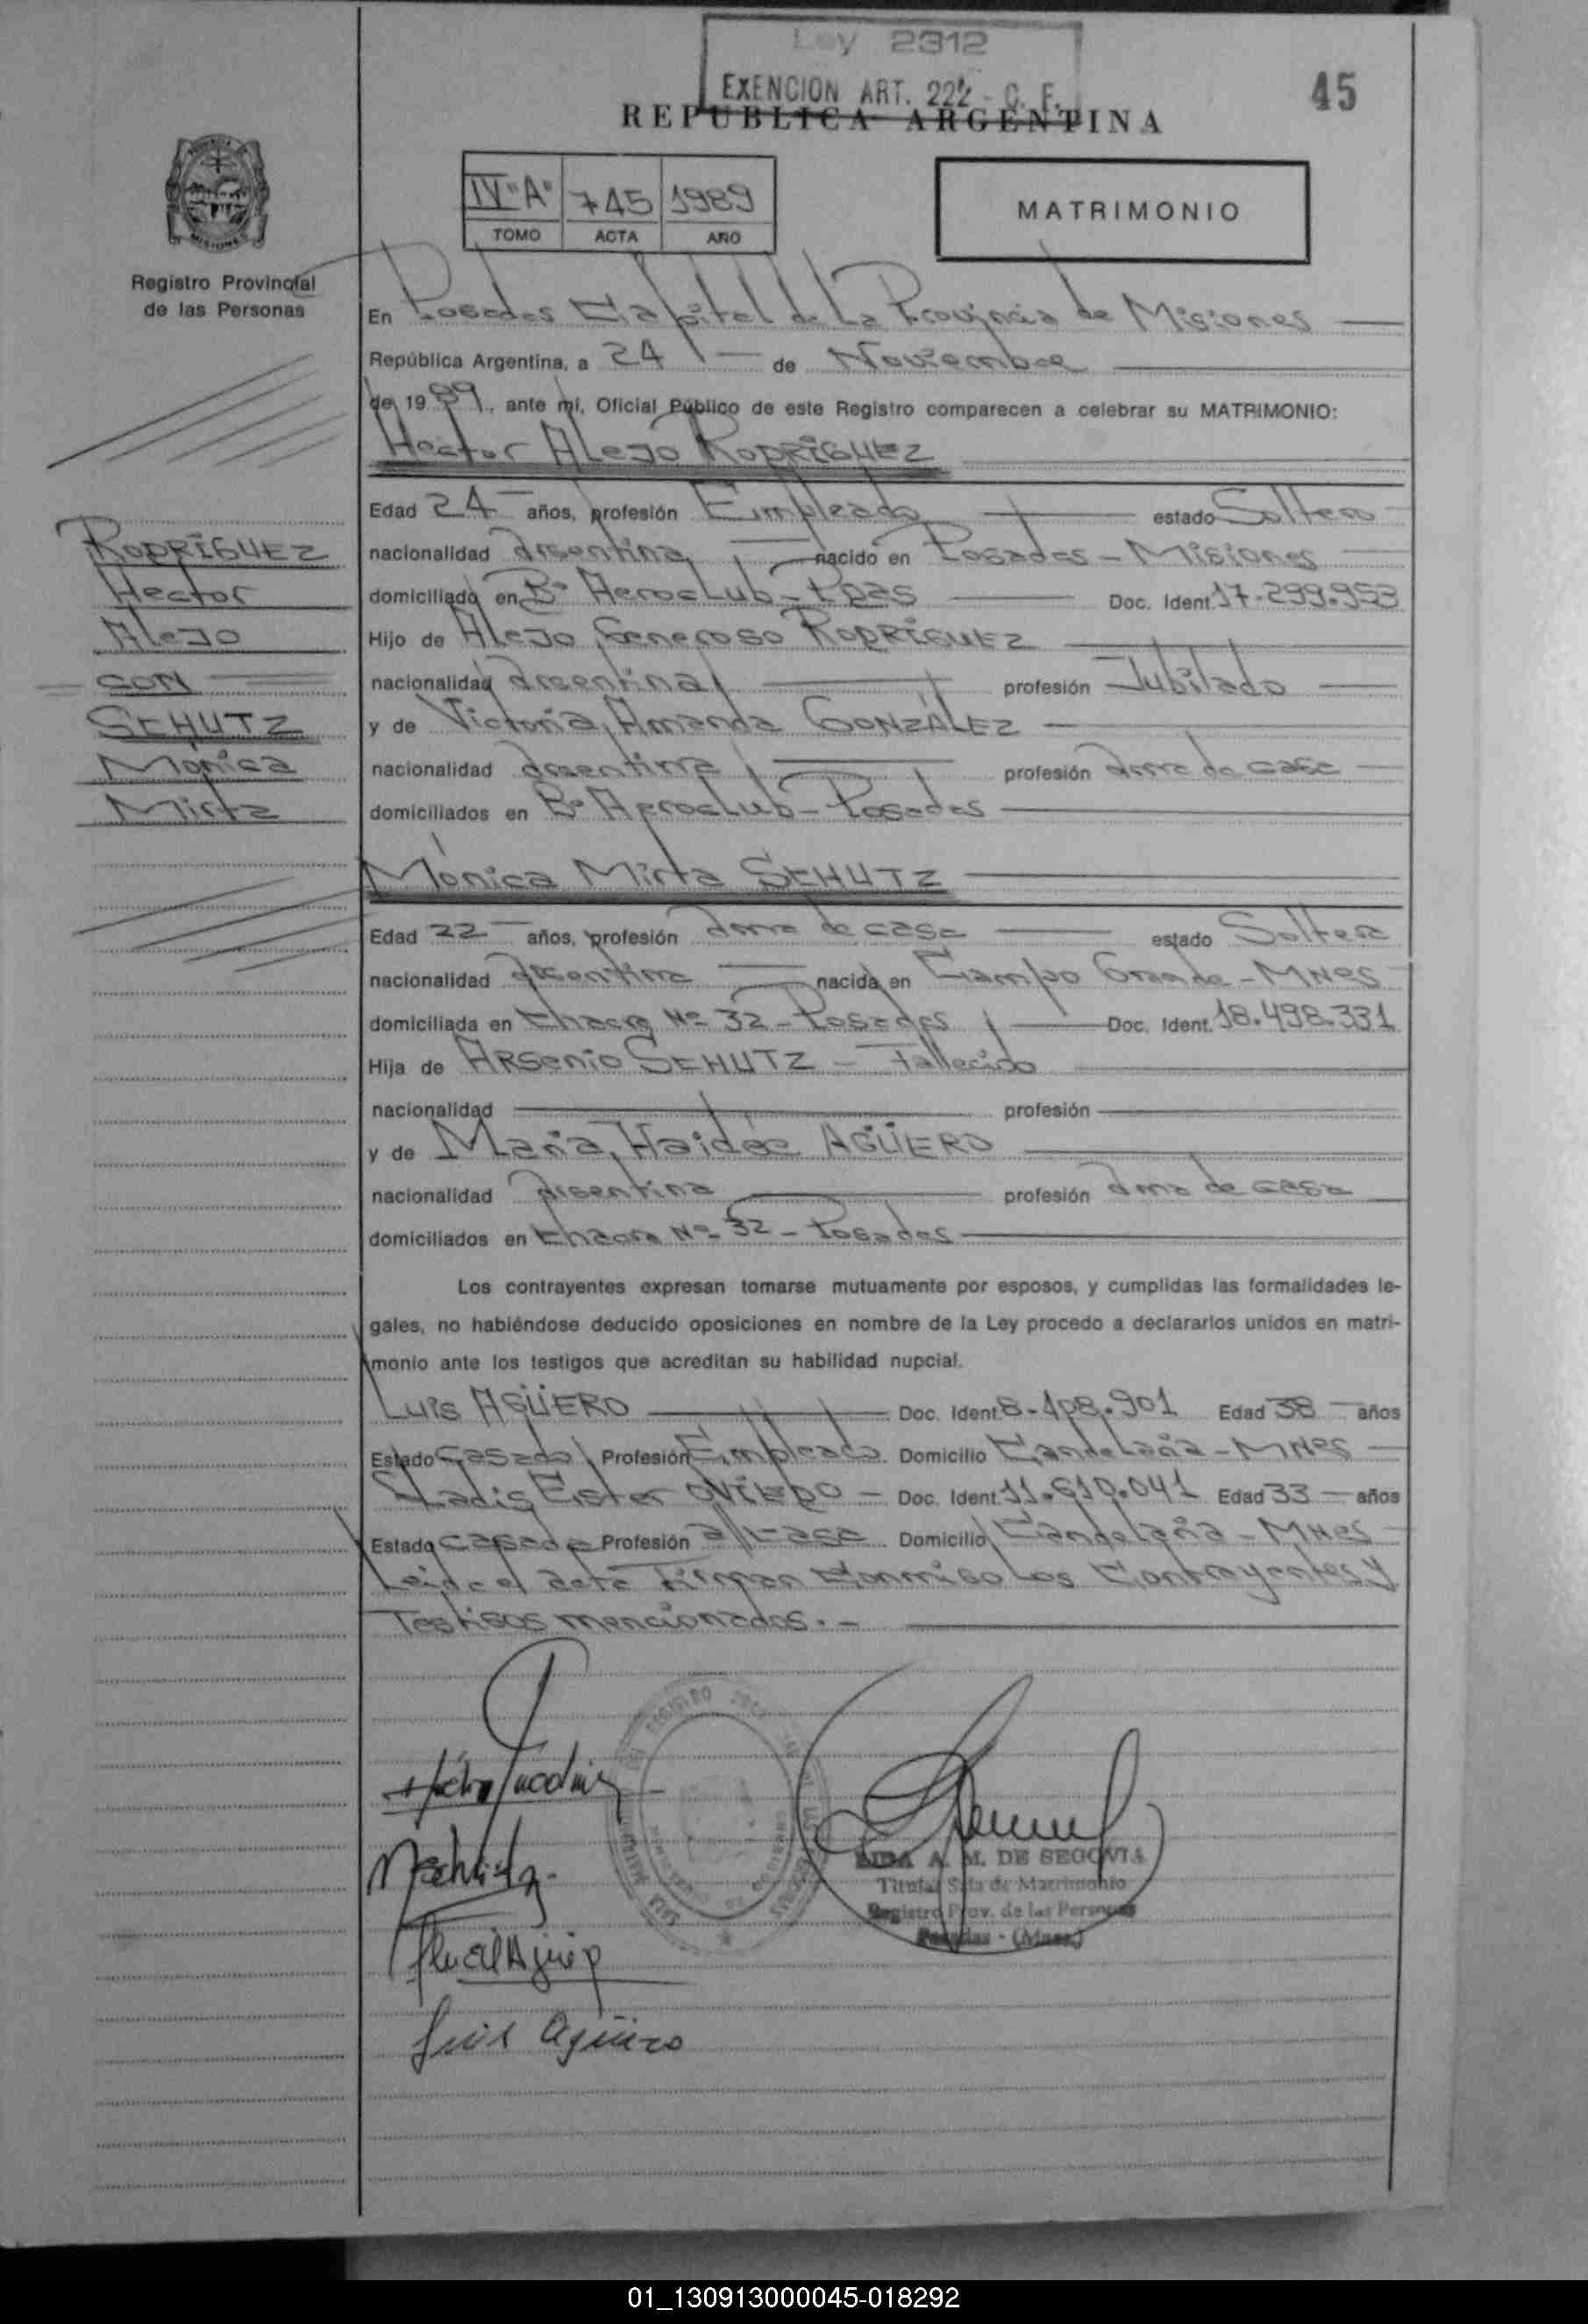 Ley 2312
EXENCION ART. 222 - C. F.
45
REPUBLICA ARGENTINA
IV"A" 745 1989
TOMO ACTA AÑO
MATRIMONIO
Registro Provincial
de las Personas
En Posadas Capital de La Provincia de Misiones
República Argentina, a 24 de Noviembre
de 1989, ante mí, Oficial Público de este Registro comparecen a celebrar su MATRIMONIO:
Hector Alejo RODRIGUEZ
Edad 24 años, profesión Empleado estado Soltero
nacionalidad argentina nacido en Posadas - Misiones
domiciliado en Bº Aeroclub - Pdas Doc. Ident. 17.299.953
Hijo de Alejo Generoso RODRIGUEZ
nacionalidad argentina profesión Jubilado
y de Victoria Amanda GONZÁLEZ
nacionalidad argentina profesión ama de casa
domiciliados en Bº Aeroclub - Posadas
RODRIGUEZ
Hector
Alejo
CON
SCHUTZ
Mónica
Mirta
Mónica Mirta SCHUTZ
Edad 22 años, profesión ama de casa estado Soltera
nacionalidad argentina nacida en Campo Grande - Mnes
domiciliada en Chacra Nº 32 - Posadas Doc. Ident. 18.498.331
Hija de Arsenio SCHUTZ - Fallecido
nacionalidad profesión
y de María Haidée AGÜERO
nacionalidad argentina profesión ama de casa
domiciliados en Chacra Nº 32 - Posadas
Los contrayentes expresan tomarse mutuamente por esposos, y cumplidas las formalidades le-
gales, no habiéndose deducido oposiciones en nombre de la Ley procedo a declararlos unidos en matri-
monio ante los testigos que acreditan su habilidad nupcial.
Luis AGÜERO Doc. Ident. 8.408.901 Edad 38 años
Estado Casado Profesión Empleado Domicilio Candelaria - Mnes
Gladis Ester OVIEDO - Doc. Ident. 11.610.041 Edad 33 años
Estado Casada Profesión a/casa Domicilio Candelaria - Mnes
Leída el acta Firman Conmigo los Contrayentes y
Testigos mencionados. -
AIDA A. M. DE SEGOVIA
Titular Sala de Matrimonio
Registro Prov. de las Personas
Posadas - (Mnes.)
Luis Agüero
01_130913000045-018292